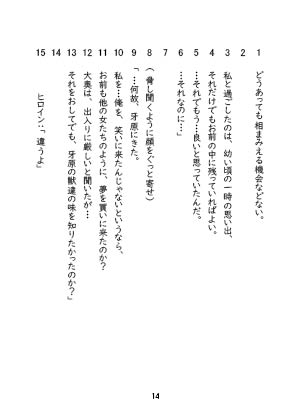 1 どうあっても相まみえる機会などない。
2
3 私と過ごしたのは、幼い頃の一時の思い出、
4 それだけでもお前の中に残っていればよい。
5 …それでもう…良いと思っていたんだ。
6 …それなのに…」
7
8 (脅し聞くように顔をぐっと寄せ)
9 「…何故、牙原にきた。
10 私を…俺を、笑いに来たんじゃないというなら、
11 お前も他の女たちのように、夢を買いに来たのか?
12 大奥は、出入りに厳しいと聞いたが…
13 それをおしてでも、牙原の獣達の味を知りたかったのか?」
14
15 ヒロイン:「違うよ」
14